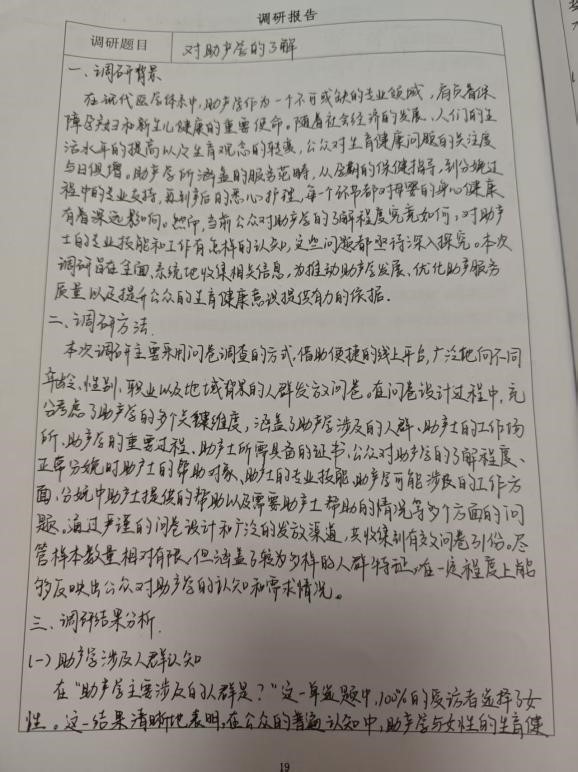 调研报告
调研题目 对助产学的了解
一、调研背景
在现代医学体系中,助产学作为一个不可或缺的专业领域,肩负着保
障孕产妇和新生儿健康的重要使命。随着社会经济的发展、人们的生
活水平的提高以及生育观念的转变,公众对生育健康问题的关注度
与日俱增。助产学所涵盖的服务范畴,从孕期的保健指导,到分娩过
程中的专业支持,再到产后的悉心护理,每一个环节都对母婴的身心健康
有着深远影响。然而,当前公众对助产学的了解程度究竟如何,对助产
士的专业技能和工作有怎样的认知,这些问题都亟待深入探究。本次
调研旨在全面、系统地收集相关信息,为推动助产学发展、优化助产服务
质量以及提升公众的生育健康意识提供有力的依据.
二、调研方法.
本次调研主要采用问卷调查的方式,借助便捷的线上平台,广泛地向不同
年龄、性别、职业以及地域背景的人群发放问卷。在问卷设计过程中,充
分考虑了助产学的多个关键维度,涵盖了助产学涉及的人群、助产士的工作场
所、助产学的重要过程、助产士所需具备的证书、公众对助产学的了解程度、
正常分娩时助产士的帮助对象、助产士的专业技能、助产学可能涉及的工作方
面、分娩中助产士提供的帮助以及需要助产士帮助的情况等多个方面的问
题。通过严谨的问卷设计和广泛的发放渠道,共收集到有效问卷份。尽
管样本数量相对有限,但涵盖了较为多样的人群特征,在一定程度上能
够反映出公众对助产学的认知和需求情况。
三、调研结果分析.
(一)助产学涉及人群认知
在"助产学主要涉及的人群是?"这一单选题中,100%的受访者选择了女
性。这一结果清晰地表明,在公众的普遍认知中,助产学与女性的生育健
19